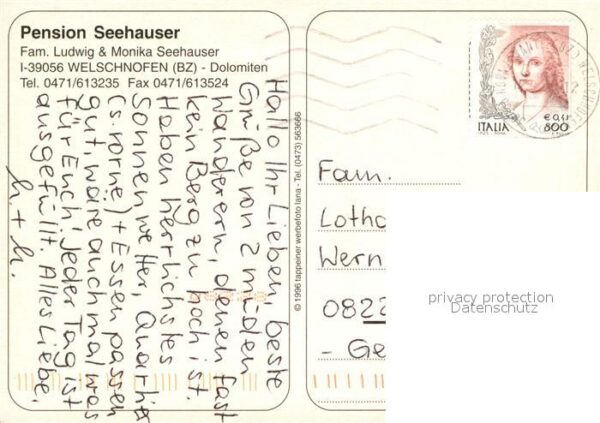 Pension Seehauser
Fam. Ludwig & Monika Seehauser
I-39056 WELSCHNOFEN (BZ) - Dolomiten
Tel. 0471/613235 Fax 0471/613524
Hallo Ihr Lieben, beste
Grüße von 2 müden
Wanderern, denen fast
kein Berg zu hoch ist.
Haben herrlichstes
Sonnenwetter, Quartier
(s. vorne) + Essen passen
gut, wäre auch mal was
für Euch! Jeder Tag ist
ausgefüllt. Alles Liebe.
h. + h.
© 1996 tappeiner werbefoto lana - Tel. (0473) 563666
€ 0,41
ITALIA 800
Fam.
Lotha
Wern
0822
- Ge
privacy protection
Datenschutz